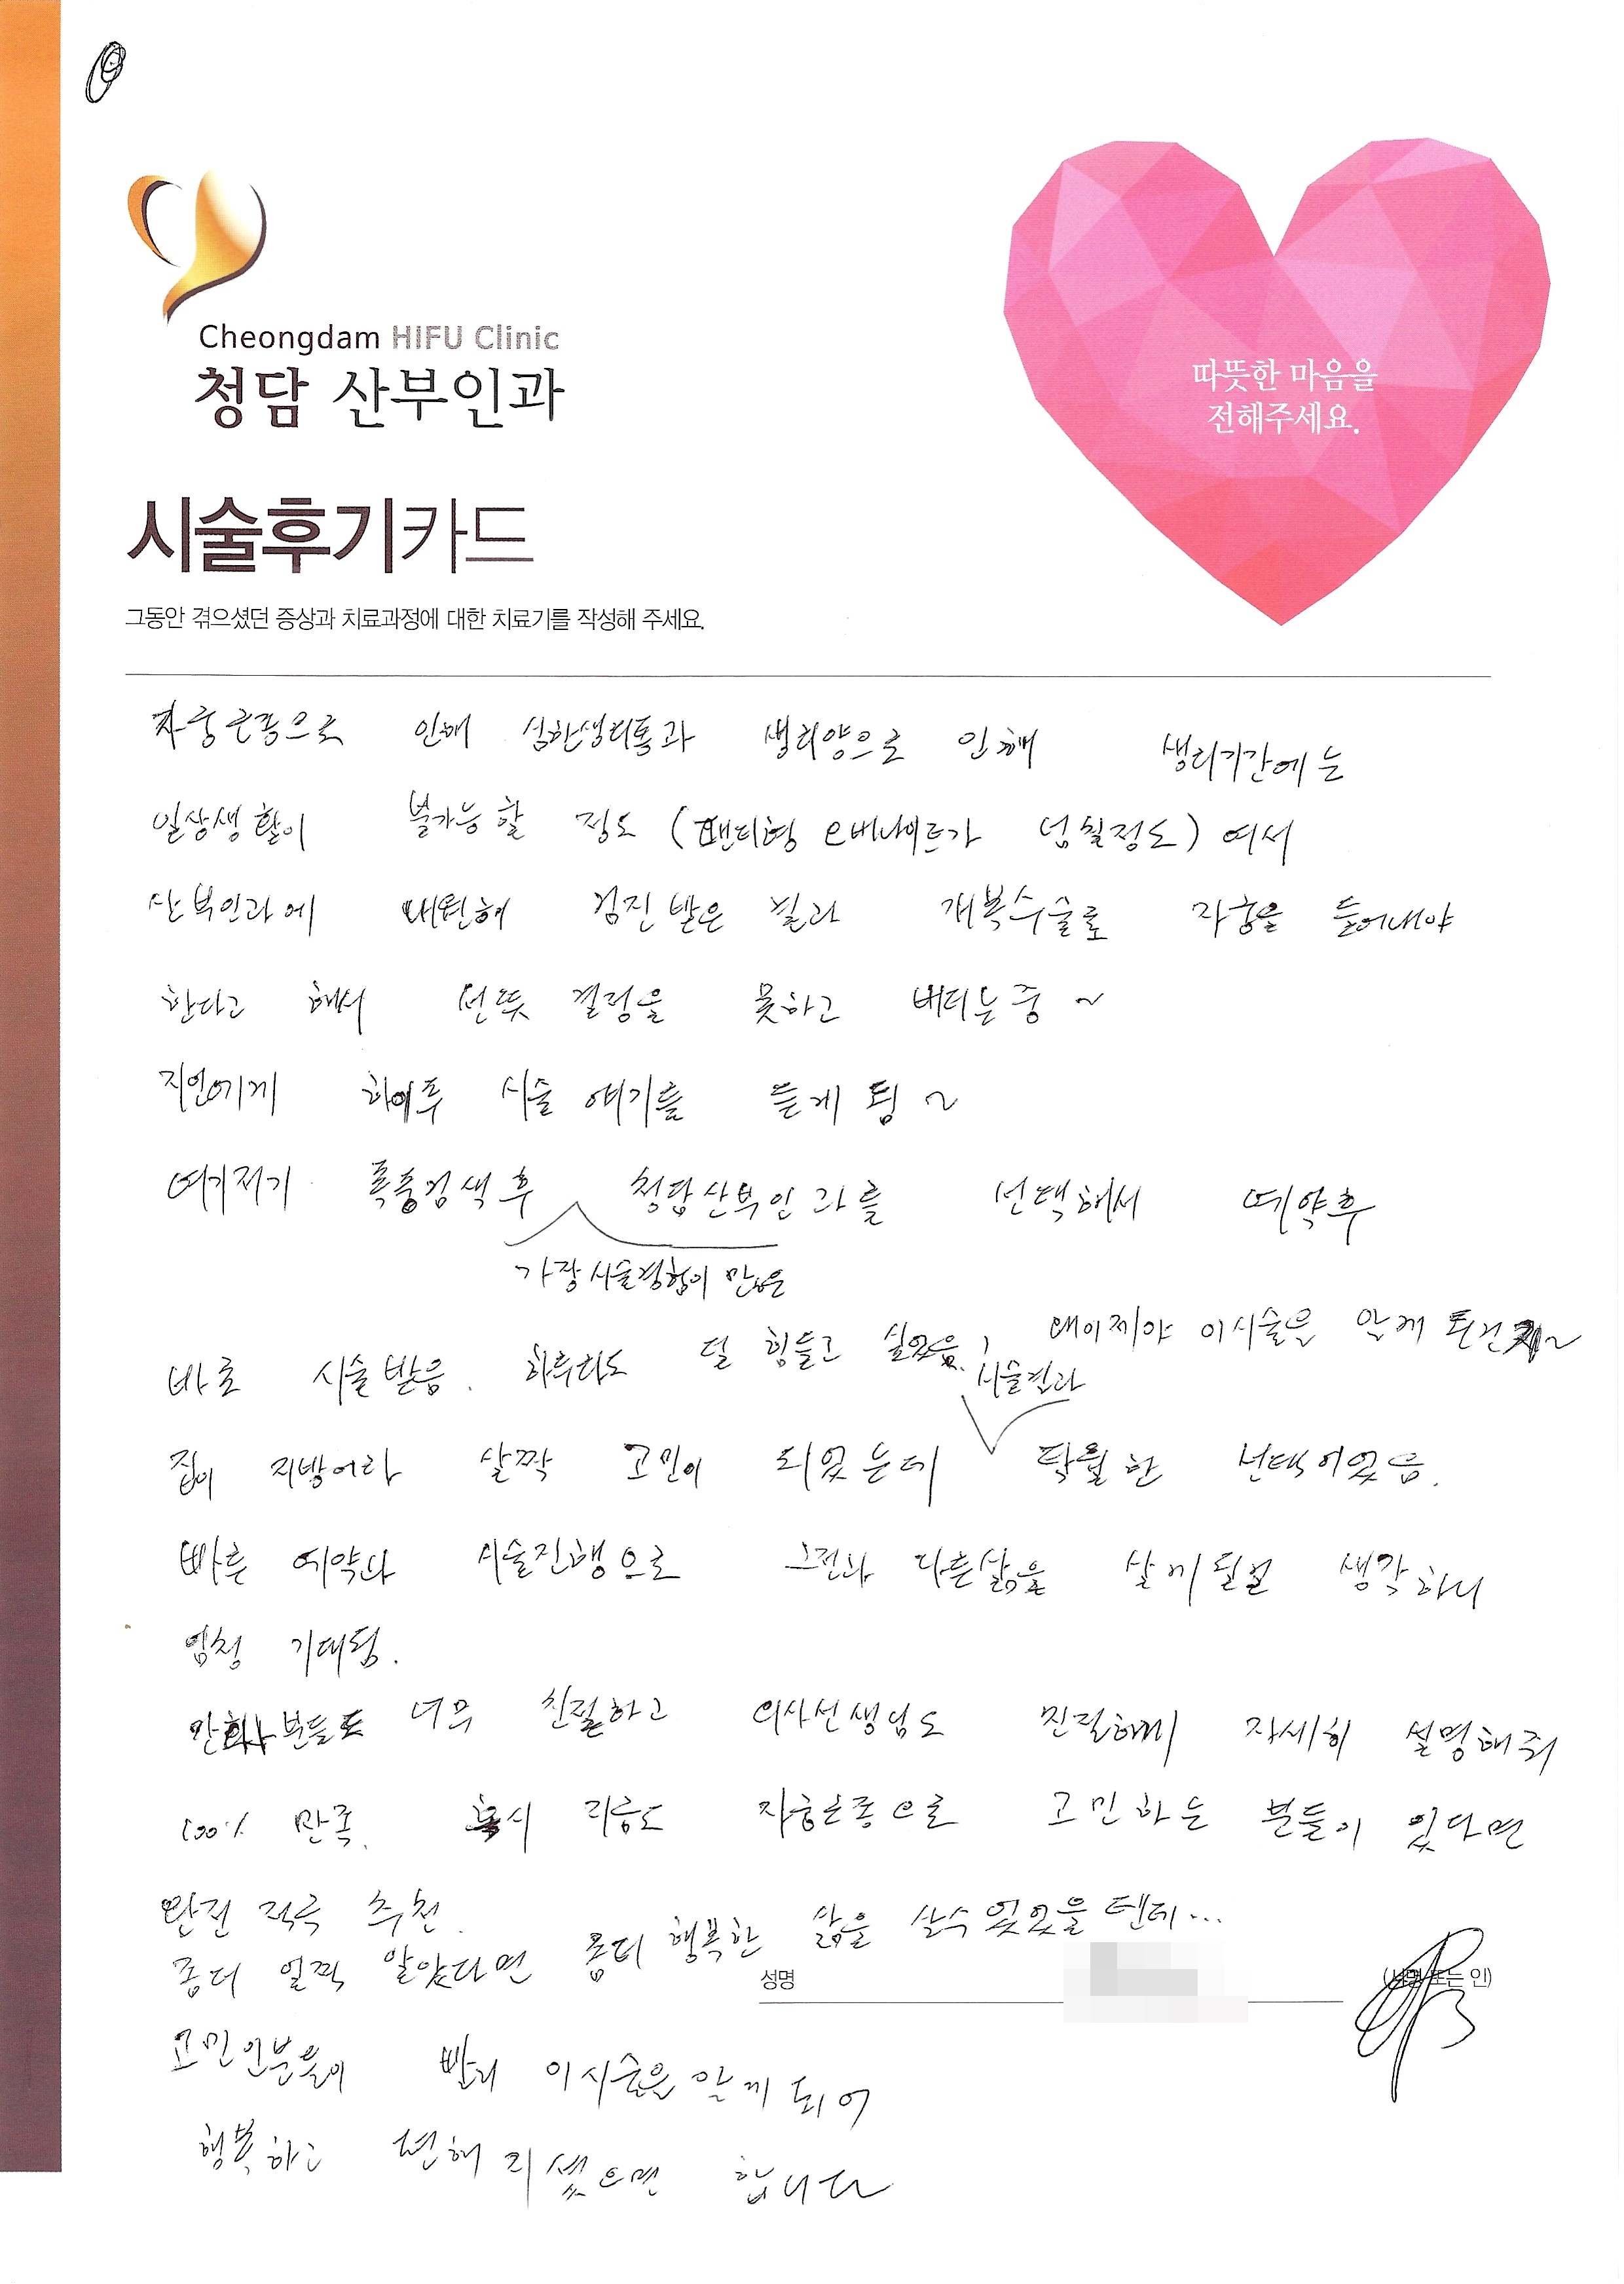 Cheongdam HIFU Clinic
청담 산부인과
따뜻한 마음을
전해주세요.
시술후기카드
그동안 겪으셨던 증상과 치료과정에 대한 치료기를 작성해 주세요.
자궁근종으로 인해 심한생리통과 생리양으로 인해 생리기간에는
일상생활이 불가능할 정도 (팬티형 오버나이트가 넘칠정도) 여서
산부인과에 내원해 검진받은 결과 개복수술로 자궁을 들어내야
한다고 해서 선뜻 결정을 못하고 버티는중 ~
지인에게 하이푸 시술 얘기를 듣게 됨 ~
여기저기 폭풍검색후 청담산부인과를 선택해서 예약후
가장 시술경험이 많은
바로 시술받음. 하루라도 덜 힘들고 싶었음, 왜이제야 이시술을 알게 된건지~
시술결과
집이 지방이라 살짝 고민이 되었는데 탁월한 선택이었음.
빠른 예약과 시술진행으로 그전과 다른삶을 살게될걸 생각하니
엄청 기대됨.
간호사분들도 너무 친절하고 의사선생님도 친절하게 자세히 설명해줘
100% 만족. 혹시 지금도 자궁근종으로 고민하는 분들이 있다면
완전 적극 추천.
좀더 일찍 알았다면 좀더 행복한 삶을 살수 있었을 텐데...
성명
(서명 또는 인)
고민인분들이 빨리 이시술을 알게 되어
행복하고 편해지셨으면 합니다